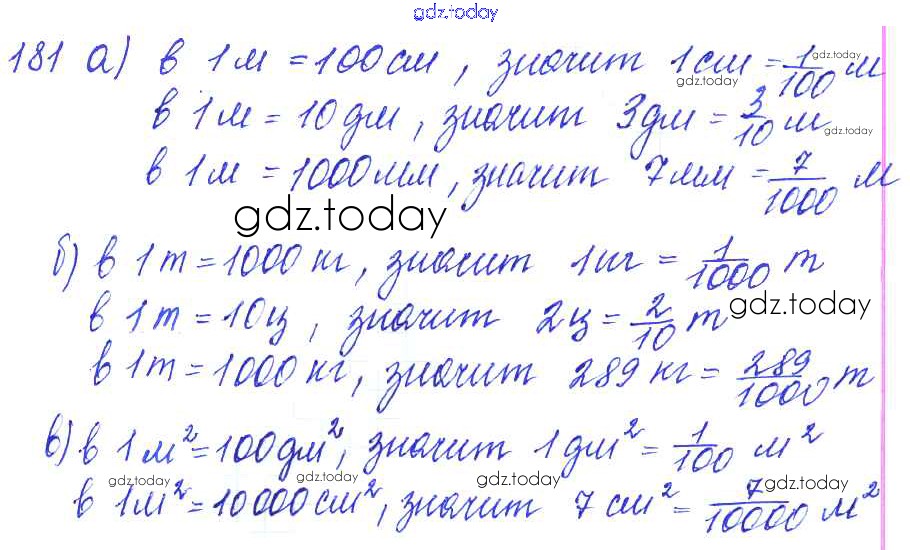 gdz.today
181 а) в 1 м = 100 см, значит 1 см = 1/100 м
gdz.today
в 1 м = 10 дм, значит 3 дм = 3/10 м
gdz.today
в 1 м = 1000 мм, значит 7 мм = 7/1000 м
gdz.today
б) в 1 т = 1000 кг, значит 1 кг = 1/1000 т
в 1 т = 10 ц, значит 2 ц = 2/10 т
gdz.today
в 1 т = 1000 кг, значит 289 кг = 289/1000 т
в) в 1 м² = 100 дм², значит 1 дм² = 1/100 м²
gdz.today gdz.today gdz.today gdz.today
в 1 м² = 10000 см², значит 7 см² = 7/10000 м²